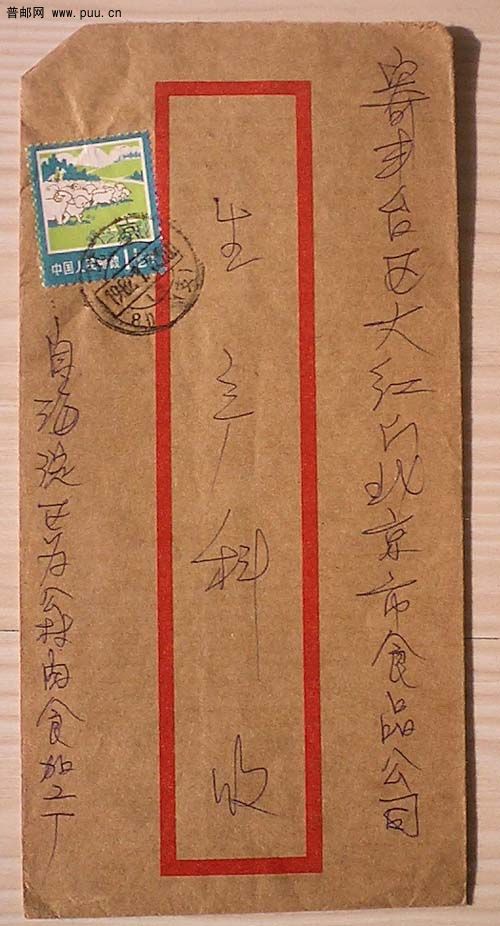 普邮网 www.puu.cn
寄丰台区大红门北京市食品公司
生产科 收
自海淀区为公村肉食加工厂
中国人民邮政
京